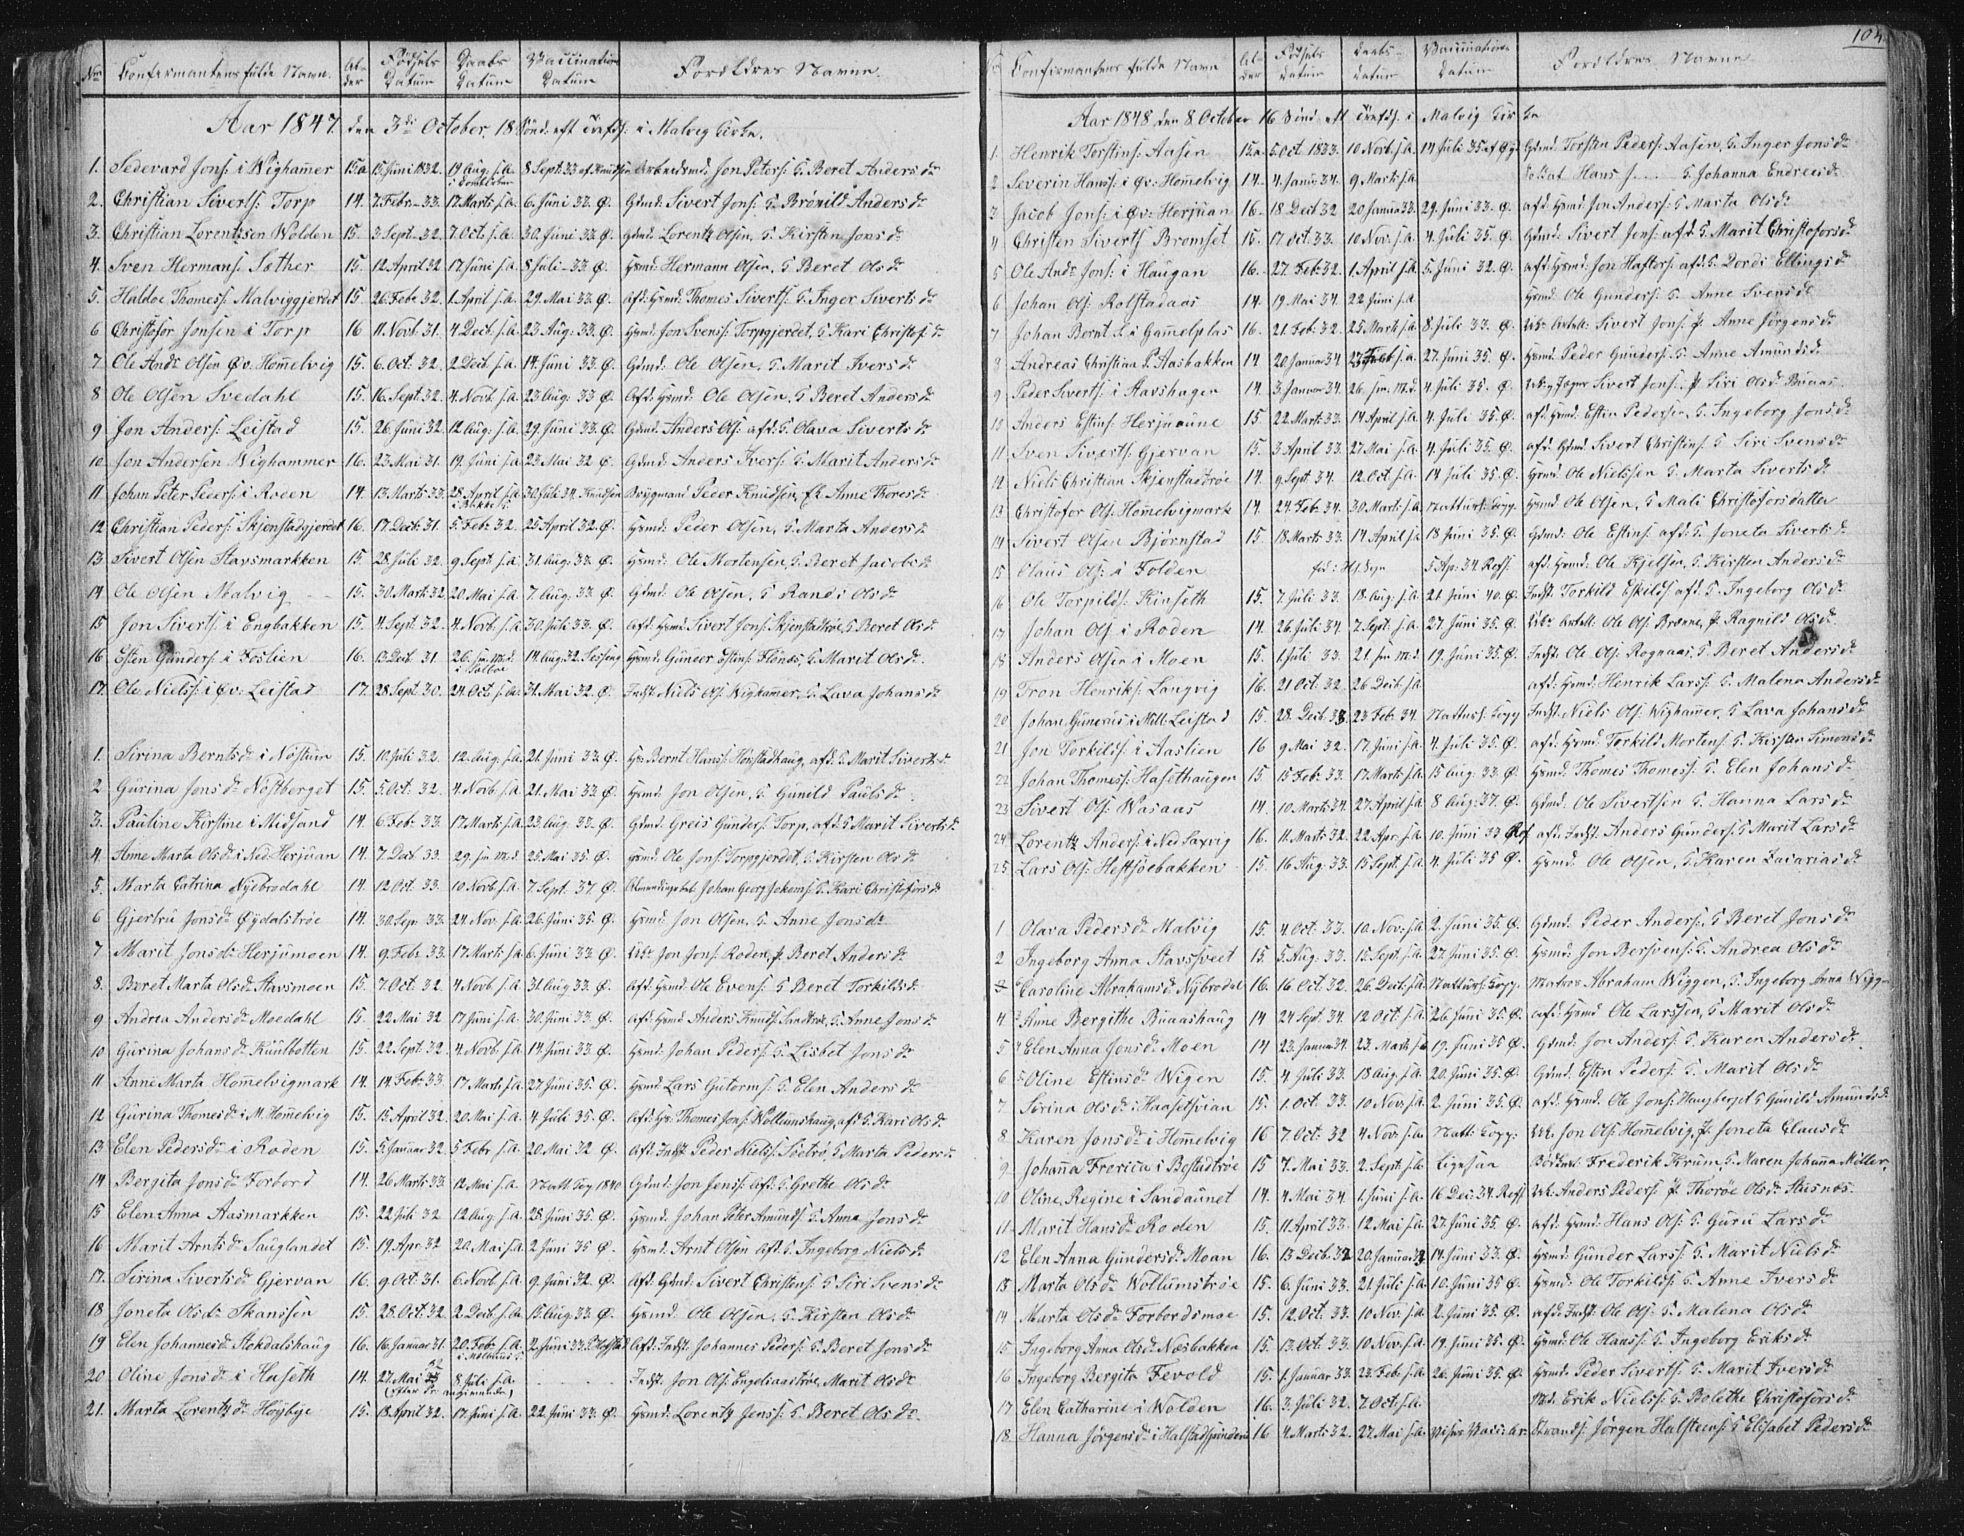 No Confirmantens fulde Navn. Al-der Fødsels Datum Daabs Datum Vaccinations Datum Forældres Navne.
Aar 1847 den 3die October, 18 Sønd. eft Trefds. i Malvig Kirke.
1. Sedevard Jons: i Wighamer 15a 15 Juni 1832. 19 Aug. s.A. 8 Sept: 33 af Knudsen Jon Peters: G Beret Andersdr
2. Christian Siverts: Torp 14. 7 Febr. 33. 17 Marts s.A. 6 Juni 33. Ø. Gdmd. Sivert Jons: G Brønild Andersdr
3. Christian Lorentzsen Wolden 15. 3 Sept. 32. 7 Oct. s.A. 30 Juni 33. Ø. Gdmd. Lorentz Olsen, G Kirsten Jonsdr
4. Sven Hermans: Sæther 15. 12 April 32 17 Juni s.A. 8 Juli 33. Ø Hsmd. Hermann Olsen, G Beret Olsdr
5. Haldor Thomess: Malviggjerdet 15 26 Febr. 32. 1 April s.A. 29 Mai 33. Ø. Afd. Hsmd. Thomes Siverts: G Inger Sivertsdr
6 Christofor Jonsen i Torp 16 11 Novb. 31. 4 Decb. s.A. 23 Aug. 33. Ø. Hsmd. Jon Svens: Torpgjerdet, G Kari Christofsdr
7 Ole Ands Olsen Øv. Homelvig 15. 6 Oct. 32. 2 Decb. s.A. 14 Juni 33. Ø. Gdmd. Ole Olsen, G Marit Iversdr
8 Ole Olsen Svedahl 15. 16 Sept. 32. 4 Novb. s.A. 23 Aug: 33 Ø Afd. Hsmd. Ole Olsen, G Beret Andersdr
9 Jon Anders: Leistad 15. 26 Juni 32. 12 Aug. s.A. 29 Juni 33. Ø. Gdmd. Anders Ols: afd. G Olava Sivertsdr
10 Jon Andersen Wighammer 16. 23 Mai 31. 19. Juni s.A. 23 Mai 32 Ø. Gdmd. Anders Ivers: G Marit Andersdr
11 Johan Peter Peders: i Roeen 14. 13 Marts 33. 28 April s.A. i Bakke K. 30 Juli 34. Knudsen Brygmand Peder Knudsen, Anne Thoresdr
12 Christian Peders: Skjenstadgjerdet 16. 17 Decb. 31. 5 Febr. 32. 25 April 32. Ø. Hsmd. Peder Olsen, G Marta Andersdr
13 Sivert Olsen Stavsmarkken 15. 28 Juli 32. 9 Sept. s.A. 31. Aug: 33. Ø. Hsmd. Ole Mortensen, G Beret Jacobsdr
14 Ole Olsen Malvig 15. 30 Marts 32. 20 Mai s.A. 7. Aug: 33 Ø. Gdmd. Ole Olsen, G Randi Olsdr
15 Jon Siverts: i Engbakken 15. 4 Sept. 32. 4 Novb. s.A. 30 Juli 33. Ø. Afd. Hsmd. Sivert Jons: Skjenstadtrøe, G Beret Olsdr
16 Esten Gunders: i Foslien 16. 13 Decb. 31. 26. 14 Aug: 32. Hsmd. Gunder Estins: Flønes, G Marit Olsdr
17. Ole Niels: i Øv: Leistad 17. 28 Sept. 30. 24 Oct. s.A. 31. Mai 32. Ø. Indst. Niels Ols: Wighamer, G Lava Johansdr
1. Sirina Berntsdr i Nostum 15. 10 Juli 32. 12 Aug. s.A. 21 Juni 33. Ø. Hs: Bernt Hans: Honstadhaug, afd. G Marit Sivertsdr
2 Gurina Jonsdr Nostberget 15. 5 Oct. 32. 4 Novb. s.A. 21. Mai 33. Ø. Hsmd. Jon Olsen, G. Gunild Paulsdr
3. Pauline Kirstine i Midsand 14. 6 Febr. 33. 17 Marts s.A. 23 Aug. 33. Ø. Gdmd. Greis Gunders: Torp, afd. G Marit Sivertsdr
4. Ane Marta Olsdr i Ned. Herjuan 14. 7 Decb. 33. 29. 25 Mai 35. Ø. Hsmd. Ole Jons: Torpgjerdet, G Kirsten Olsdr
5. Marta Catrina Nyebrodahl 14. 12 Oct. 33. 10 Novb. s.A. 7 Sept. 37. Ø. Johan Georg Jokoms: G Kari Christofersdr
6 Gjertru Jonsdr Øydalstrøe 14. 30 Sep. 33. 24 Nov. s.A. 26 Juni 35. Ø. Hsmd. Jon Olsen, G. Anne Jonsdr
7 Marit Jonsdr Herjumoen 14. 9. Febr. 33. 17 Marts s.A. 6. Juni 33. Ø. Jon Jons: Roden, Beret Andersdr
8. Beret Marta Olsdr Stavsmoen 15. 7. Oct. 32. 4 Novb. s.A. 31. Aug 33. Ø. Afd. Hsmd. Ole Evens: G Beret Torkildsdr
9 Andrea Andersdr Moedahl 15. 22 Mai 32. 17 Juni s.A. 30. Juni 33. Ø. Afd. Hsmd. Anders Knuds: Sandtrøe, G Anne Jonsdr
10 Gurina Johansdr Kuulbotten 15. 22. Sept. 32. 4. Novb. s.A. 14. Juni 33. Ø. Hsmd. Johan Peders: G Lisbet Jonsdr
11 Anne Marta Homelvigmark 14 14. Febr. 33. 17 Marts s.A. 27 Juni 35. Ø. Hsmd. Lars Gutorms: G Elen Andersdr
12 Gurina Thomesdr i M. Homelvig 15. 15. April 32. 20 Mai s.A. 4 Juli 35. Ø. Afd. Hs: Thomes Jons: Wollumshaug, afd. G Kari Olsdr
13 Elen Pedersdr i Roden 15. 5 Januar 32. 5 Febr. s.A. 20 Mai 32. Ø. Afd. Indst. Peder Niels: Sætrø, G Marta Pedersdr
14 Bergita Jonsdr Forbord 14. 26 Marts 33. 12 Mai s.A. Natt Cop 1840 Gdmd. Jon Jenss: Afd. G Grethe Olsdr
15 Elen Anna Aasmarkken 15. 22 Juli 32 12 Aug. s.A. 28 Juni 35. Ø. Hsmd. Johan Peter Amunds: G Anna Jonsdr
16 Marit Arntsdr Sauglandet 15. 19. Apr. 32 20. Mai s.A. 2 Juni 35 Ø. Hsmd. Arnt Olsen Afd. G Ingeborg Nielsdr
17. Sirina Sivertsdr Gjervan 16. 9. Oct. 31. 6 Novb. s.A. 9. Juni 32. Ø. Afd. Gdmd. Sivert Christens: G Siri Svensdr
18 Joneta Olsdr Skanssen 15. 28. Oct. 32. 2 Decb. s.A. 15 Aug: 33. Ø. Hsmd. Ole Olsen, G. Kirsten Olsdr
19 Elen Johannesdr Stokdalshaug 16. 16. Januar 31. 20. Febr. s.A. 2 Juni 33. Afd. Indst. Johannes Peders: G Beret Jonsdr
20 Oline Jonsdr i Huseth 14. 27. Mai 8 Juli s.A. Indst. Jon Ols: Engeliaastrøe, Marit Olsdr
21. Marta Lorentzdr Høybye 15. 18 April 32. 17 Juni s.A. 22 Juni 33. Ø. Gdmd. Lorentz Jenss: G Beret Olsdr
104.
No Confirmantens fulde Navn Al-der Fødsels datum daabs-datum Vaccinations Datum Forældres Navne
Aar 1848 den 8 October 16 Sønd. eft Trefds. i Malvig Kirke
1. Henrik Torstins: Aasen 15a. 5 Oct. 1833. 10 Novb. s.A. 14 Juli 35. af Øye Gdmd. Torsten Peders: Aasen, G Inger Jonsdr
2 Severin Hanss: i Øv: Homelvig 14. 4. Januar 34. 9 Marts s.A. Soldat Hans J. G Johanna Endreasdr
3 Jacob Jons: i Øv: Herjuan 16. 18 Decb 32 20 Januar 33. 29. Juni 33. Ø. afd. Hsmd. Jon Anders: G Marta Olsdr
4 Christen Siverts Bromset 15. 17 Oct. 33. 10 Nov. s.A. 4 Juli 35. Ø. Gdmd. Sivert Jons: afd. G Marit Christofersdr
5 Ole Ands Jons: i Haugan 16. 27. Feb. 32. 1. April s.A. 5. Juni 32. Ø. afd. Hsmd. Jon Hafters: afd. G Dordi Ellingsdr
6 Johan Ols: Rolstadaas 14. 19. Mai 34. 22 Juni s.A. Hsmd. Ole Gunders: G. Anne Svensdr
7 Johan Bernt S. i Gamelplas 16. 21. Feb. 32. 25. Marts s.A. 8 Juli 33. Ø Sivert Jons: Anne Jørgensdr
8 Andreas Christian P. Aasbakken 14 20 Januar 34 23 Feb s.A. 27. Juni 35. Ø. Hsmd. Peder Gunders: G. Anne Amundsdr
9 Peder Siverts: i Stavshagen 14. 3. Januar 34. 26. 4 Juli 35. Ø. Sivert Jons: Siri Olsdr Buaas
10 Anders Estins: Herjuaune 15. 22. Marts 33. 14 April s.A. 4. Juli 35. Ø. afd. Hsmd. Estin Pedersen, G. Ingeborg Jonsdr
11. Sven Siverts: Gjervan 15. 3 April 33. 27 Mai s.A. 4 Juli 35. Ø. afd. Gdmd Sivert Christins: G Siri Svensdr
12 Niels Christian Skjenstadtrøe 14. 9. Sept. 34. 12 Oct. s.A. 14 Juli 35. Ø. Hsmd. Ole Nielssen G Marta Sivertsdr
13 Christofer Ols: Homelvigmark 14. 24. Feb. 34. 30 Marts s.A. Natturl. Cop Hsmd Ole Olsen, G Mali Christofersdatter
14 Sivert Olsen Bjørnstad 15. 18 Marts 33. 14 April s.A. 18 Juni 35. Ø. Gdmd. Ole Estins: afd. G Joneta Sivertsdr
15 Claus Ols: i Folden 5 Ap: 34. afd. Hsmd. Ole Kjelsen, G. Kirsten Andersdr
16 Ole Torpilds: Kinseth 15. 7. Juli 33. 18. Aug. s.A. 21 Juni 40. Ø. Indst. Torkild Eskilds: afd. G Ingeborg Olsdr
17 Johan Ols: i Roden 14. 26. Juli 34. 7. Sept. s.A. 27 Juni 35. Ø. Ole Ols: Brønne, Ragnild Olsdr
18 Anders Olsen i Moen 15. 1. Juli 33. 21. 19. Juni 35. Ø. Indst. Ole Ols: Rognaas, G Beret Andersdr
19 Tron Henriks: Langvig 16. 21 Oct. 32. 26 Decb. s.A. afd. Hsmd. Henrik Lars: G Malena Andersdr
20 Johan Gunerius i Mell. Leistad 15. 28. Decb. 33. 23 Feb. 34. Natturl. Copp Indst. Niels Ols: Wighamer, G Lava Johansdr
21. Jon Torkilds: i Aastien 16 9. Mai 32. 17. Juni s.A. 4. Juli 35. Ø. afd. Hsmd. Torkild Mortens: G Kirsten Simonsdr
22 Johan Thomess: Hasethaugen 15 15 Feb. 33. 17 Marts s.A. 15 Aug: 33. Ø. Hsmd. Thomes Thomess: G. Elen Johansdr
23 Sivert Ols: Wasaas 14. 10. Marts 34. 27 April s.A. 8 Aug: 37. Ø. Gdmd. Ole Sivertsen G. Hanna Larsdr
24 Lorentz Anders: i Ned Saxvig 16. 11. Marts 32. 22 Apr. s.A. 10. Juni 33 afd. Indst. Anders Gunders: G Marit Larsdr
25 Lars Ols: Hestsjøebakken 15. 16 Aug. 33. 15 Sept. s.A. 4. Juli 35 Ø. Hsmd. Ole Olsen, G. Karen Zacariasdr
1 Olava Pedersdr Malvig 15. 4. Oct. 33. 10. Nov: s.A. 2. Juni 35. Ø. Gdmd. Peder Anders: G Beret Jonsdr
2 Ingeborg Anna Stavssveet 15. 5. Aug. 33. 15 Sept. s.A. 27. Juni 35. Ø. Hsmd. Jon Bersvens: G. Andrea Olsdr
3 Caroline Abrahamsdr Nybrodal 16. 16 Oct. 32. 26. Decb. s.A. Natturl. Copp. Abraham Wiggen, G. Ingeborg Anna Wiggen
4. Anne Bergithe Buaashaug 14 24 Sept. 34. 12 Oct. s.A. 26. Juni 35. Ø. afd. Hsmd. Ole Larssen, G Marit Olsdr
5 Elen Anna Jonsdr Moen 14 23. Januar 34. 23. Marts s.A. 19. Juni 35 Ø. Gdmd. Jon Anders: G Karen Andersdr
6 Oline Estinsdr Wigen 15. 4 Juli 33. 18 Aug. s.A. 20. Juni 35. Ø. Gdmd. Estin Peders: G. Marit Olsdr
7. Sirina Olsdr i Haasetsvian 15. 1. Oct. 33. 10 Nov. s.A. 2. Juni 35. Ø afd. Hsmd. Ole Jons: Haugberget G Gunild Amundsdr
8. Karen Jonsdr i Homelvig 16 7. Oct. 32 4 Nov. s.A. Natt: Copp: Jon Ols: Homelvig, Joneta Clausdr
9. Johana Frerica i Bostadtrøe 15 7. Mai 33. 2. Sept. s.A. Ligesaa Frederik Krum, G. Maren Johana Møller.
10 Oline Regine i Sandaunet 14. 4 Mai 34. 1. Juni s.A. 16 Dec: 34. Anders Peders: Thorøe Olsdr Stusnes.
11 Marit Hansdr Roden 15. 11 April 33. 12 Mai s.A. 27. Juni 35. Ø. afd. Hsmd. Hans Ols: G. Guru Larsdr
12 Elen Anna Gundersdr Moan 16. 13 Decb. 32 20 Januar 33 14 Juni 33. Ø. Hsmd. Gunder Lars: G. Marit Nielsdr
13 Marta Olsdr Wollumstrøe 15. 6. Juni 33. 21 Juli s.A. 10. Juni 35 Ø. Hsmd. Ole Torkilds: G. Anne Iversdr
14 Marta Olsdr Forbordsmoe 15. 12 Oct. 33. 10 Nov. s.A. 2. Juni 35. Ø. afd. Indst. Ole Ols: G Malena Olsdr
15 Ingeborg Anna Olsdr Næsbakken 15. 13. Oct. 33. 10. Nov. s.A. 19. Juni 35. Ø. Hsmd. Ole Hanss: G. Ingeborg Eriksdr
16 Ingeborg Bergita Fevold 15. 1. Januar 33. 23. Feb. s.A. 26. Juni 35. Ø. Hsmd. Peder Siverts: G. Marit Iversdr
17 Elen Catharine i Wolden 16. 3. Juli 32. 7. Oct. s.A. Erik Niels: G Bolethe Christofersdr
18. Hanna Jørgensdr i Halstadsjunderie 16. 4. Marts 32. 27. Mai s.A. Strands: Jørgen Halsteens: G Elisabet Pedersdr